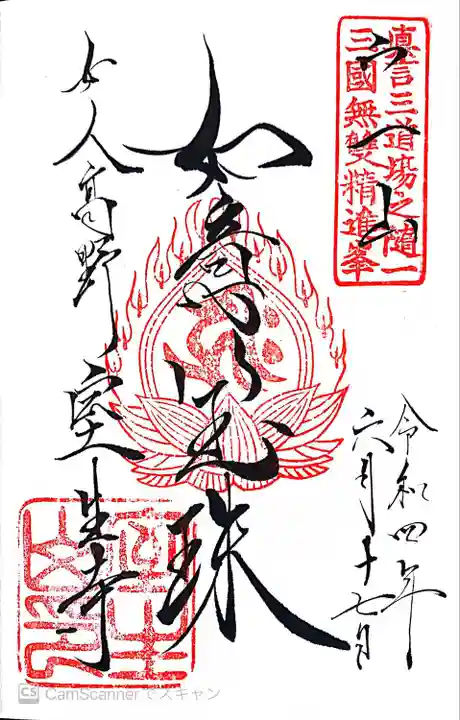 眞言三道場之隨一
三國無雙精進峯
宀一山
令和四年
六月十七日
如意宝珠
女人高野 室生寺
CS CamScannerでスキャン